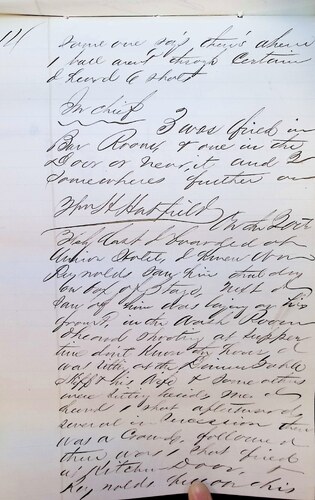 some one say's there's where
1 ball went through certain
I heard 6 shots
In chief
3 was fired in
Bar Room & one in the
Door or near it and 2
somewheres further on
Wm H Hatfield
I boarded at
Union Hotel, I knew Wm
Reynolds saw him that day
on box of Stage, next I
saw of him was laying on his
in the Wash Room
I heard shooting at supper
time don't know hour I
was sitting at the Dinner Table
& his Wife & some others
were sitting beside me I
heard 1 shot afterwards
several in succession there
was a crowd, followed
there was 1 shot fired
at Kitchen Door, &
Reynolds his